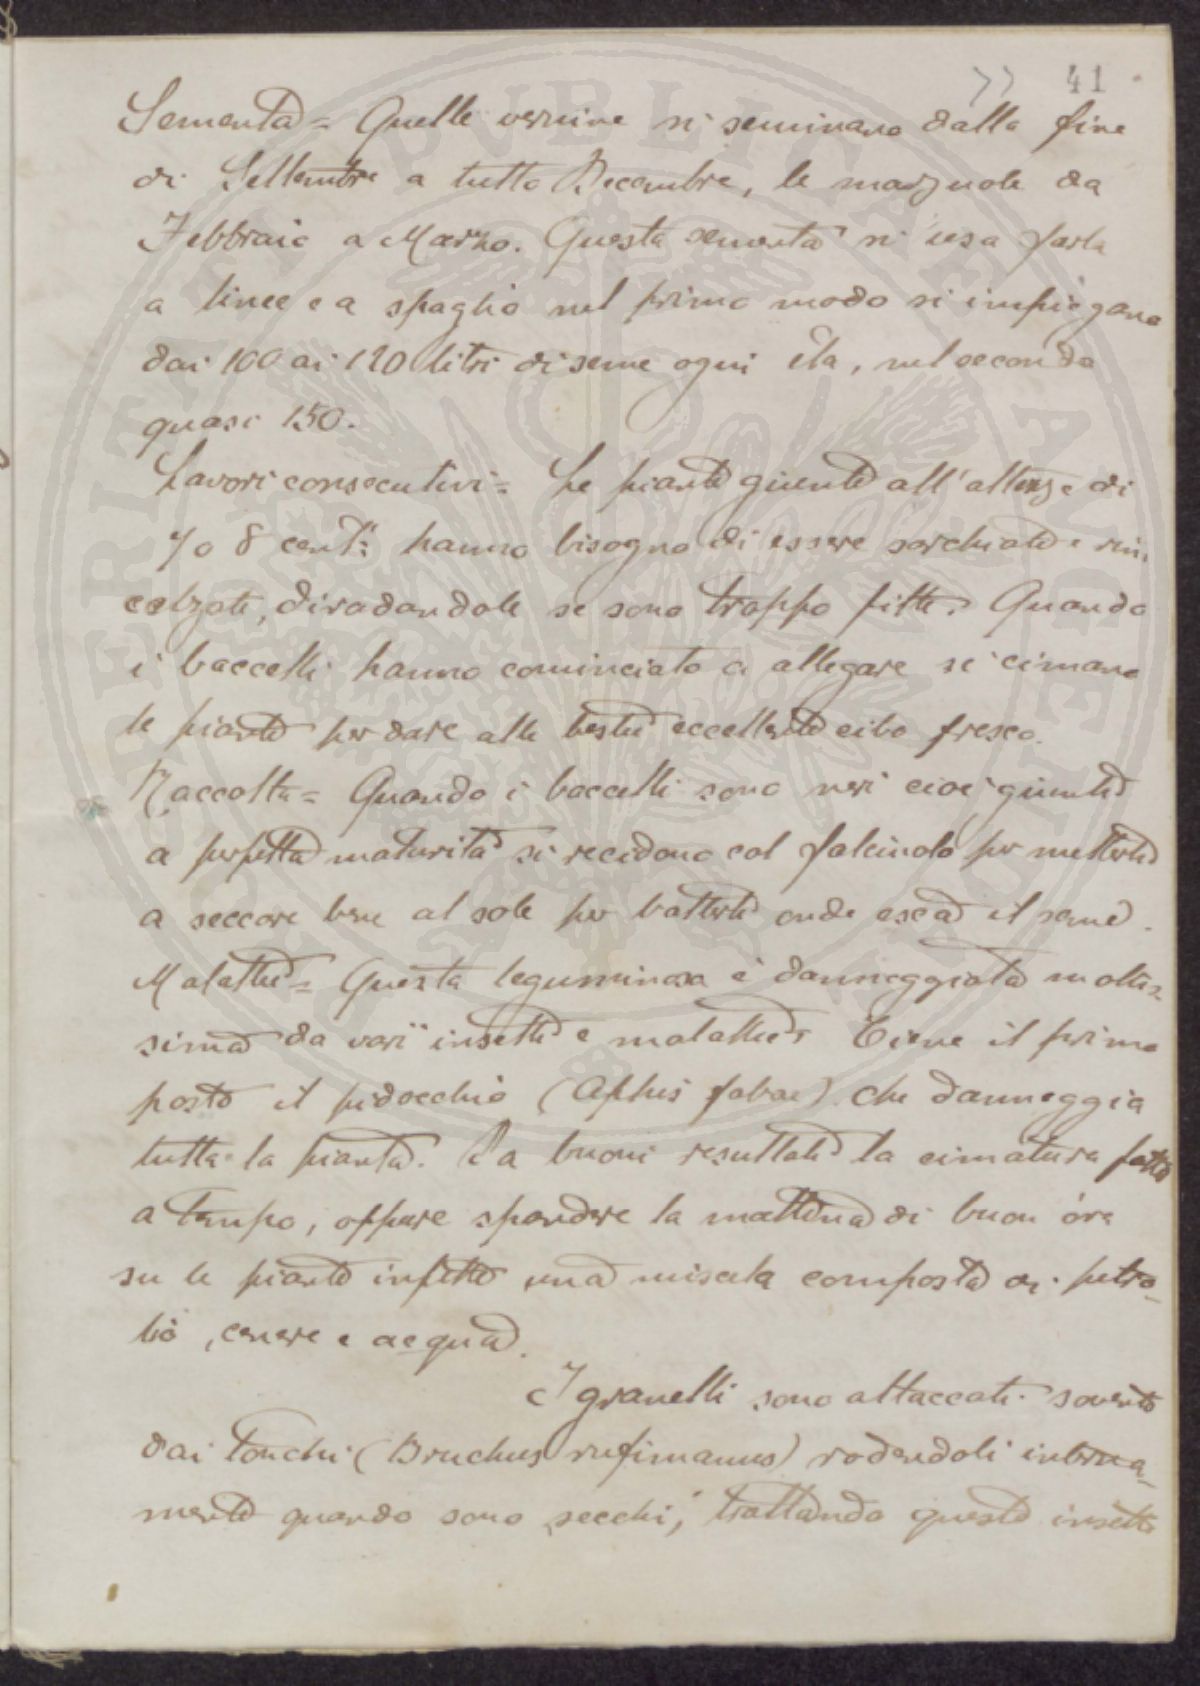 77 41
Sementa = Quelle vernine si seminano dalla fine
di Settembre a tutto Decembre, le marzuole da
Febbraio a Marzo. Questa sementa si usa farla
a linee e a spaglio nel primo modo si impiegano
dai 100 ai 120 litri di seme ogni Èta, nel secondo
quasi 150.
Lavori consecutivi = Le piante giunte all'altezza di
7 o 8 cent.i hanno bisogno di essere sarchiate e rin-
calzate, diradandole se sono troppo fitte. Quando
i baccelli hanno cominciato a allegare si cimano
le piante per dare alle bestie eccellente cibo fresco.
Raccolta = Quando i baccelli sono neri cioè giunti
a perfetta maturità si recidono col falcinolo per metterli
a seccare bene al sole per batterli onde esca il seme.
Malattie = Questa leguminosa è danneggiata moltis-
sima da varii insetti e malattie. Tiene il primo
posto il pidocchio (Aphis fabae) che danneggia
tutta la pianta. Da buoni resultati la cimatura fatta
a tempo, oppure spandere la mattina di buon'óra
su le piante infette una miscela composta di petro-
lio, cenere e acqua.
I granelli sono attaccati sovente
dai Tonchi (Bruchus rufimanus) rodendoli interna-
mente quando sono secchi; trattando questo insetto
BENEMERITAE PVBLICAE AVGENDO